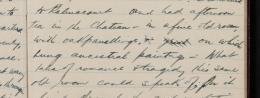 to Betnicourt and had afternoon
tea in the Chateau - in a fine old room
with oak panelling, & on which
hung ancestral paintings - What
tales of romance & tragedy this same
old room could speak of, for it